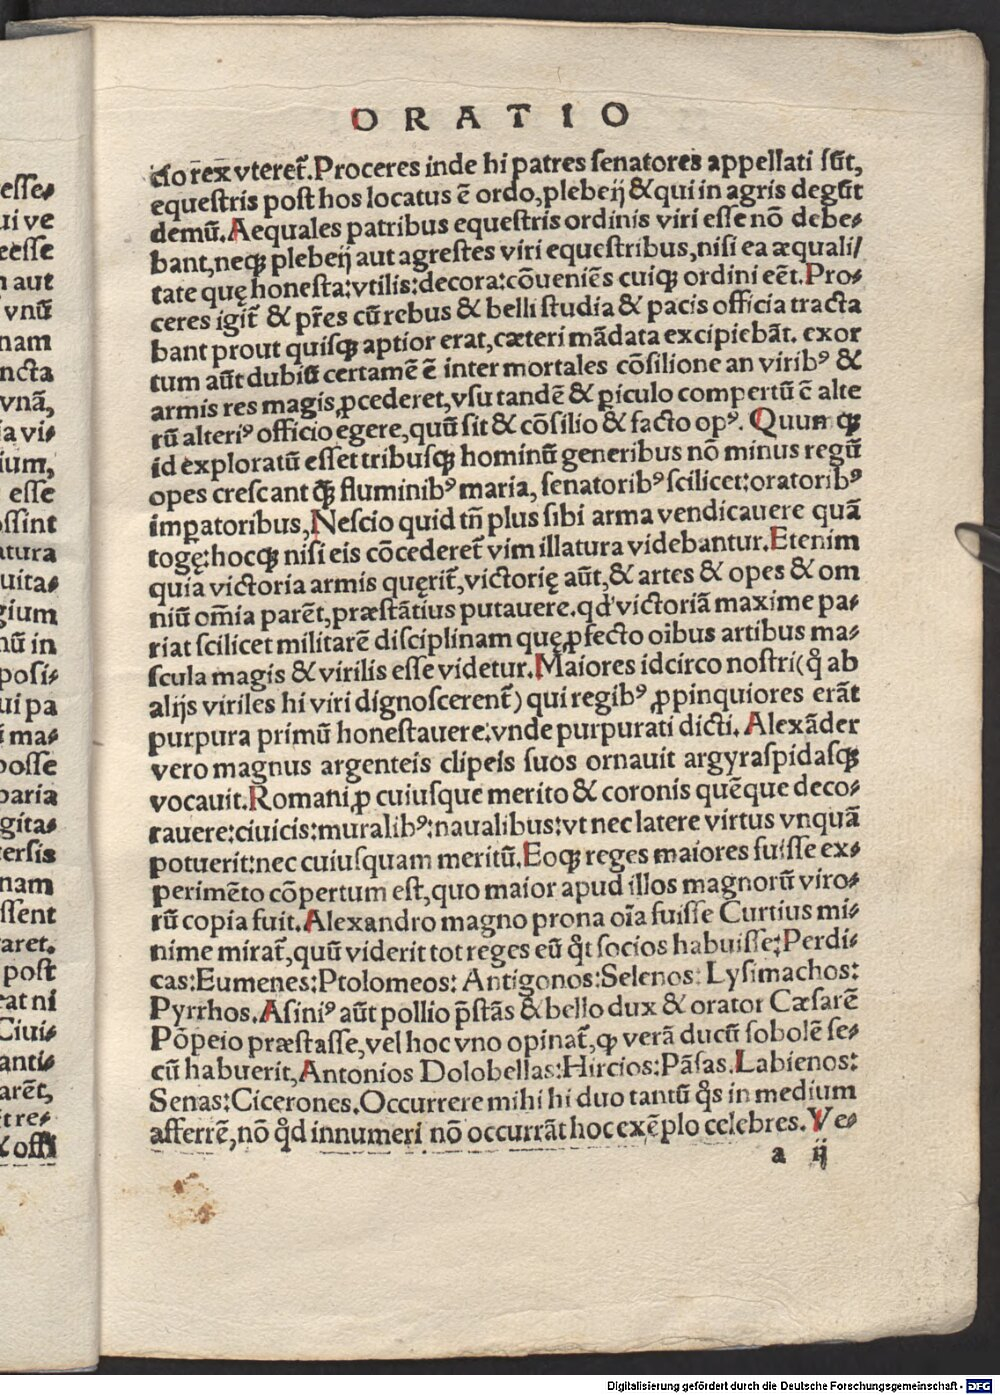 ORATIO
cio rēx vteret̄. Proceres inde hi patres senatores appellati sūt,
equestris post hos locatus ē ordo, plebeij & qui in agris degūt
demū. Aequales patribus equestris ordinis viri esse nō debe-
bant, neqꝫ plebeij aut agrestes viri equestribus, nisi ea æquali/
tate quę honesta: vtilis: decora: cōueniēs cuiqꝫ ordini eēt. Pro-
ceres igit̄ & pr̄es cū rebus & belli studia & pacis officia tracta
bant prout quisqꝫ aptior erat, cæteri mādata excipiebāt. exor
tum aūt dubiū certamē ē inter mortales cōsilione an viribꝰ &
armis res magis ꝓcederet, vsu tandē & ꝑiculo compertū ē alte
rū alteriꝰ officio egere, quū sit & cōsilio & facto opꝰ. Quum qꝫ
id exploratū esset tribusqꝫ hominū generibus nō minus regū
opes crescant q̄ꝫ fluminibꝰ maria, senatoribꝰ scilicet: oratoribꝰ
imꝑatoribus, Nescio quid tn̄ plus sibi arma vendicauere quā
togę: hocqꝫ nisi eis cōcederet̄ vim illatura videbantur. Etenim
quia victoria armis quęrit̄, victorię aūt, & artes & opes & om
niū om̄ia parēt, præstātius putauere. qd' victoriā maxime pa-
riat scilicet militarē disciplinam quę ꝓfecto oībus artibus ma-
scula magis & virilis esse videtur. Maiores idcirco nostri (q̊ ab
alijs viriles hi viri dignoscerent̄) qui regibꝰ ꝓpinquiores erāt
purpura primū honestauere: vnde purpurati dicti. Alexāder
vero magnus argenteis clipeis suos ornauit argyraspidasqꝫ
vocauit. Romani ꝓ cuiusque merito & coronis quēque deco-
rauere: ciuicis: muralibꝰ: naualibus: vt nec latere virtus vnquā
potuerit: nec cuiusquam meritū. Eoqꝫ reges maiores fuisse ex-
perimēto cōpertum est, quo maior apud illos magnorū viro-
rū copia fuit. Alexandro magno prona oīa fuisse Curtius mi-
nime mirat̄, quū viderit tot reges eū q̊t socios habuisse: Perdi-
cas: Eumenes: Ptolomeos: Antigonos: Selenos: Lysimachos:
Pyrrhos. Asiniꝰ aūt pollio p̄stās & bello dux & orator Cæsarē
Pōpeio præstasse, vel hoc vno opinat̄, ꝙ verā ducū sobolē se-
cū habuerit, Antonios Dolobellas: Hircios: Pāsas. Labienos:
Senas: Cicerones. Occurrere mihi hi duo tantū q̊s in medium
afferrē, nō q̊d innumeri nō occurrāt hoc exēplo celebres. Ve-
a ij
esse-
ui ve
eesse
n aut
vnū
nam
ncta
vnā,
ia vi-
ium,
esse
ossint
atura
uita-
gium
nū in
posi-
ui pa
i ma-
posse
paria
gita-
tersis
nam
ssent
aret.
post
eat ni
Ciui-
anti-
arēt,
t re-
& offi
Digitalisierung gefördert durch die Deutsche Forschungsgemeinschaft - DFG